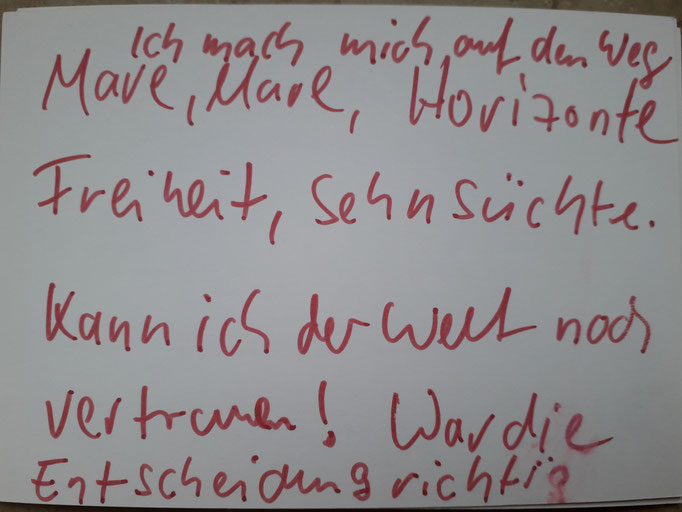 Ich mach mich auf den Weg
Mare, Mare, Horizonte
Freiheit, Sehnsüchte.
Kann ich der Welt noch
vertrauen! War die
Entscheidung richtig